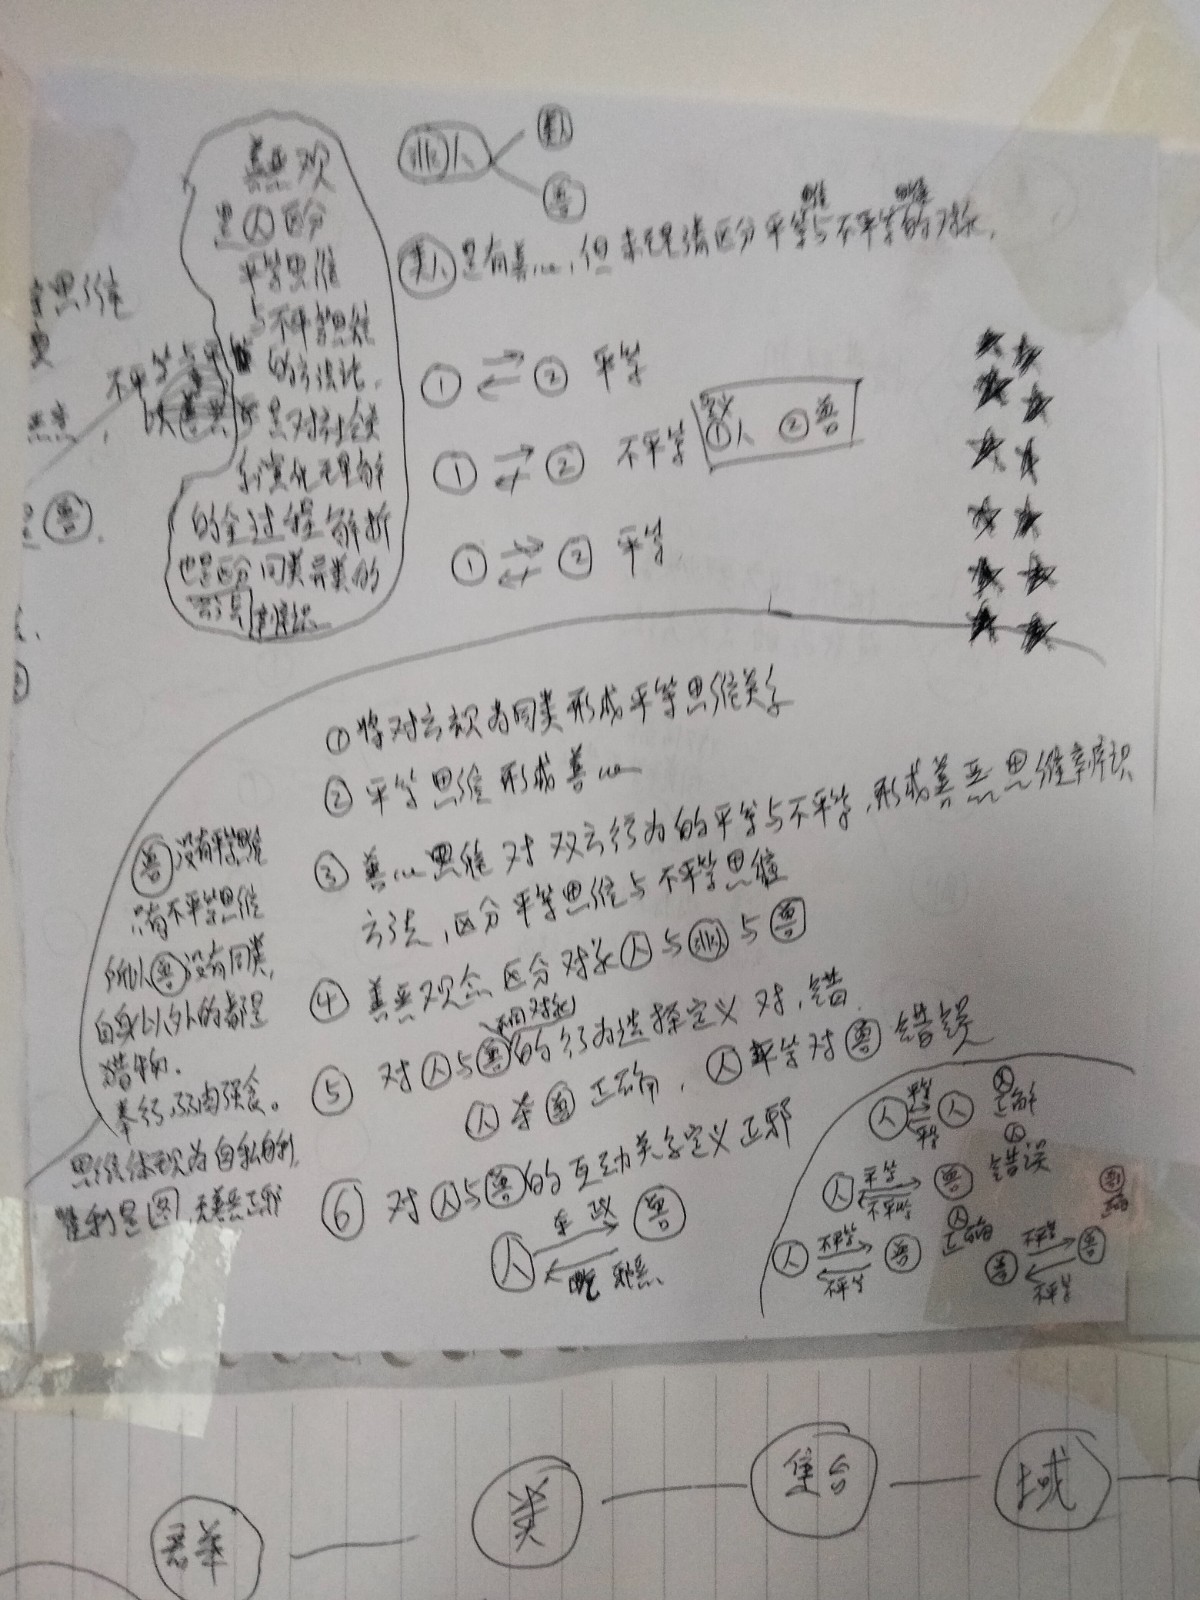 善恶观
是人区分
平等思维
与不平等思维
的方法论,
是对社会关
系演化理解
的全过程解析
也是区分同类异类的
辨识
非人
类人
兽
思维 思维
类人 是有善心,但未理清区分平等与不平等的对象,
① ② 平等
① ② 不平等
定义
①人 ②兽
① ② 平等
思维
不平等与平
兽.
① 将对方视为同类形成平等思维关系
② 平等思维形成善心
③ 善心思维对双方行为的平等与不平等,形成善恶思维辨识
方法,区分平等思维与不平等思维
④ 善恶观念区分对象人与非人与兽
不同对象
⑤ 对人与兽的行为选择定义对,错.
人杀兽正确,人平等对兽错误
⑥ 对人与兽的互动关系定义正邪
人 兽
吃 邪恶.
兽没有平等思维
只有不平等思维
所以兽没有同类,
自身以外的都是
猎物.
奉行弱肉强食。
思维体现为自私自利,
胜利是图,无善恶正邪
人 平等 人 人正确
平等
人 平等 兽 人错误
不平等
人 不平等 兽 人正确
不平等
兽 不平等 兽
不平等
群 类 集合 域